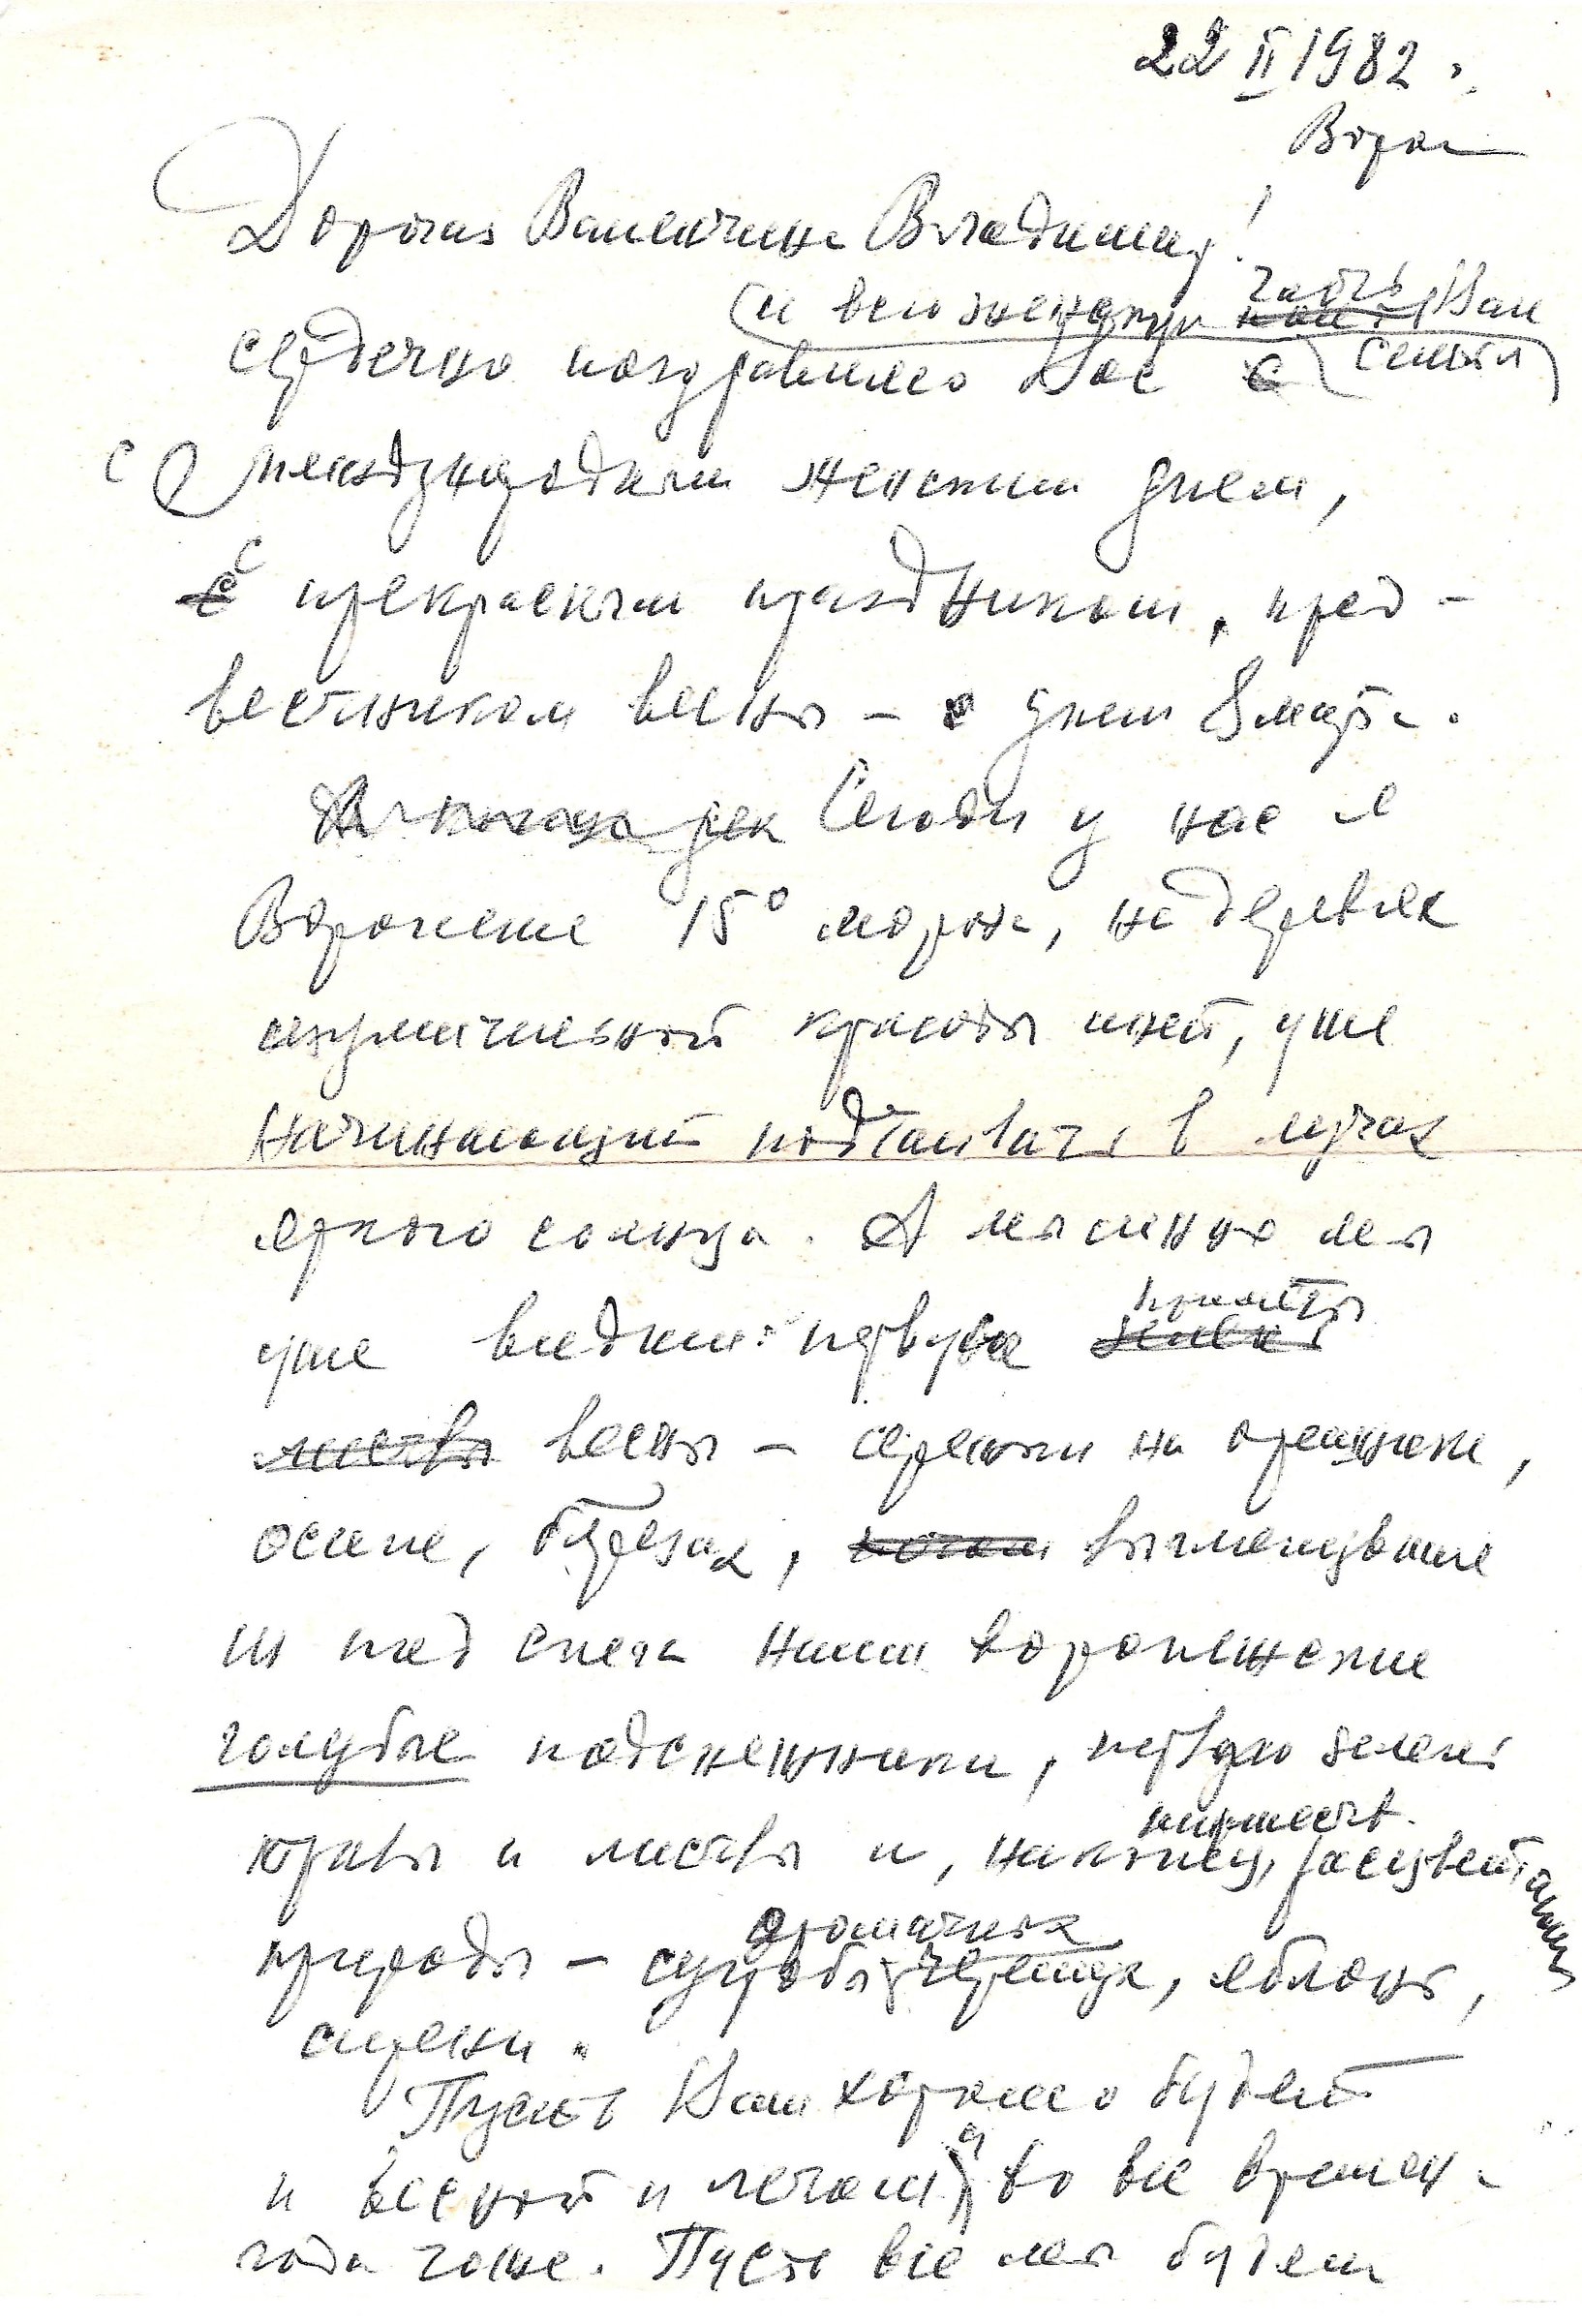 22 II 1982.
Ворон
Дорогая Валентина Владимир!
(и всю женскую часть Ваш
сердечно поздравляю Вас с семьи)
с международным женским днем,
с прекрасным праздником, пред-
вестником весны – днем 8 марта.
Сегодня у нас в
Воронеже 15° мороза, на деревьях
изумительной красоты иней, уже
начинающий подтаивать в лучах
яркого солнца. А мысленно мы
уже видим: первые приметы
листвы весны – сережки на орешнике,
осине, березах, выглянувшие
из под снега наши воронежские
голубые подснежники, первую зелень
травы и листвы и, наконец, расцвет
природы – сугробы ароматных черемух, яблонь,
сирени.
Пусть Вам хорошо будет
и весной и летом и во все времен
года тоже. Пусть все мы будем